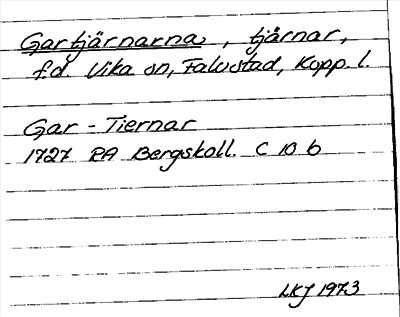 Gartjärnarna, tjärnar,
f.d. Vika sn, Falu stad, Kopp. l.
Gar - Tiernar
1727 RA Bergskoll. C 10 b
LKJ 1973